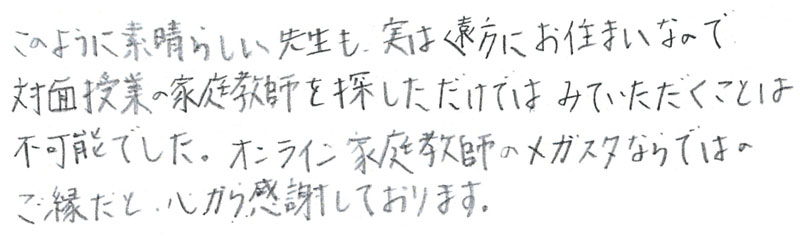 このように素晴らしい先生も、実は遠方にお住まいなので
対面授業の家庭教師を探しただけではみていただくことは
不可能でした。オンライン家庭教師のメガスタならではの
ご縁だと、心から感謝しております。